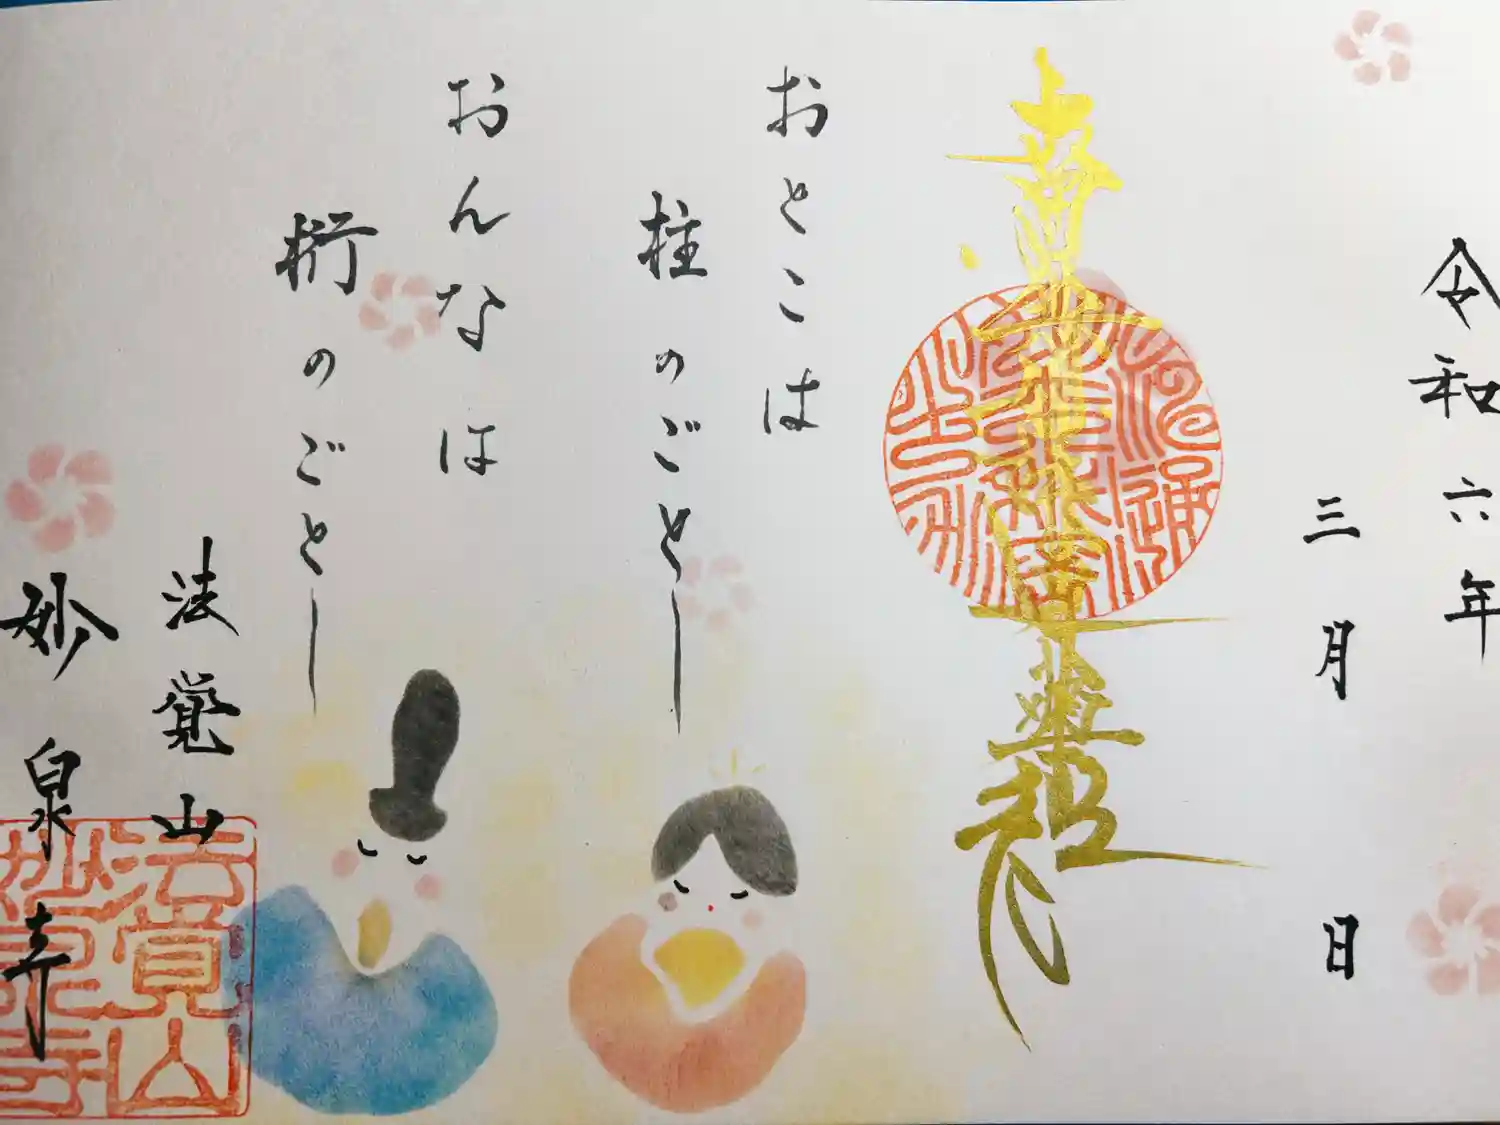 令和六年
三月 日
おとこは
柱のごとし
おんなは
桁のごとし
法覚山
妙泉寺
法覚山
妙泉寺